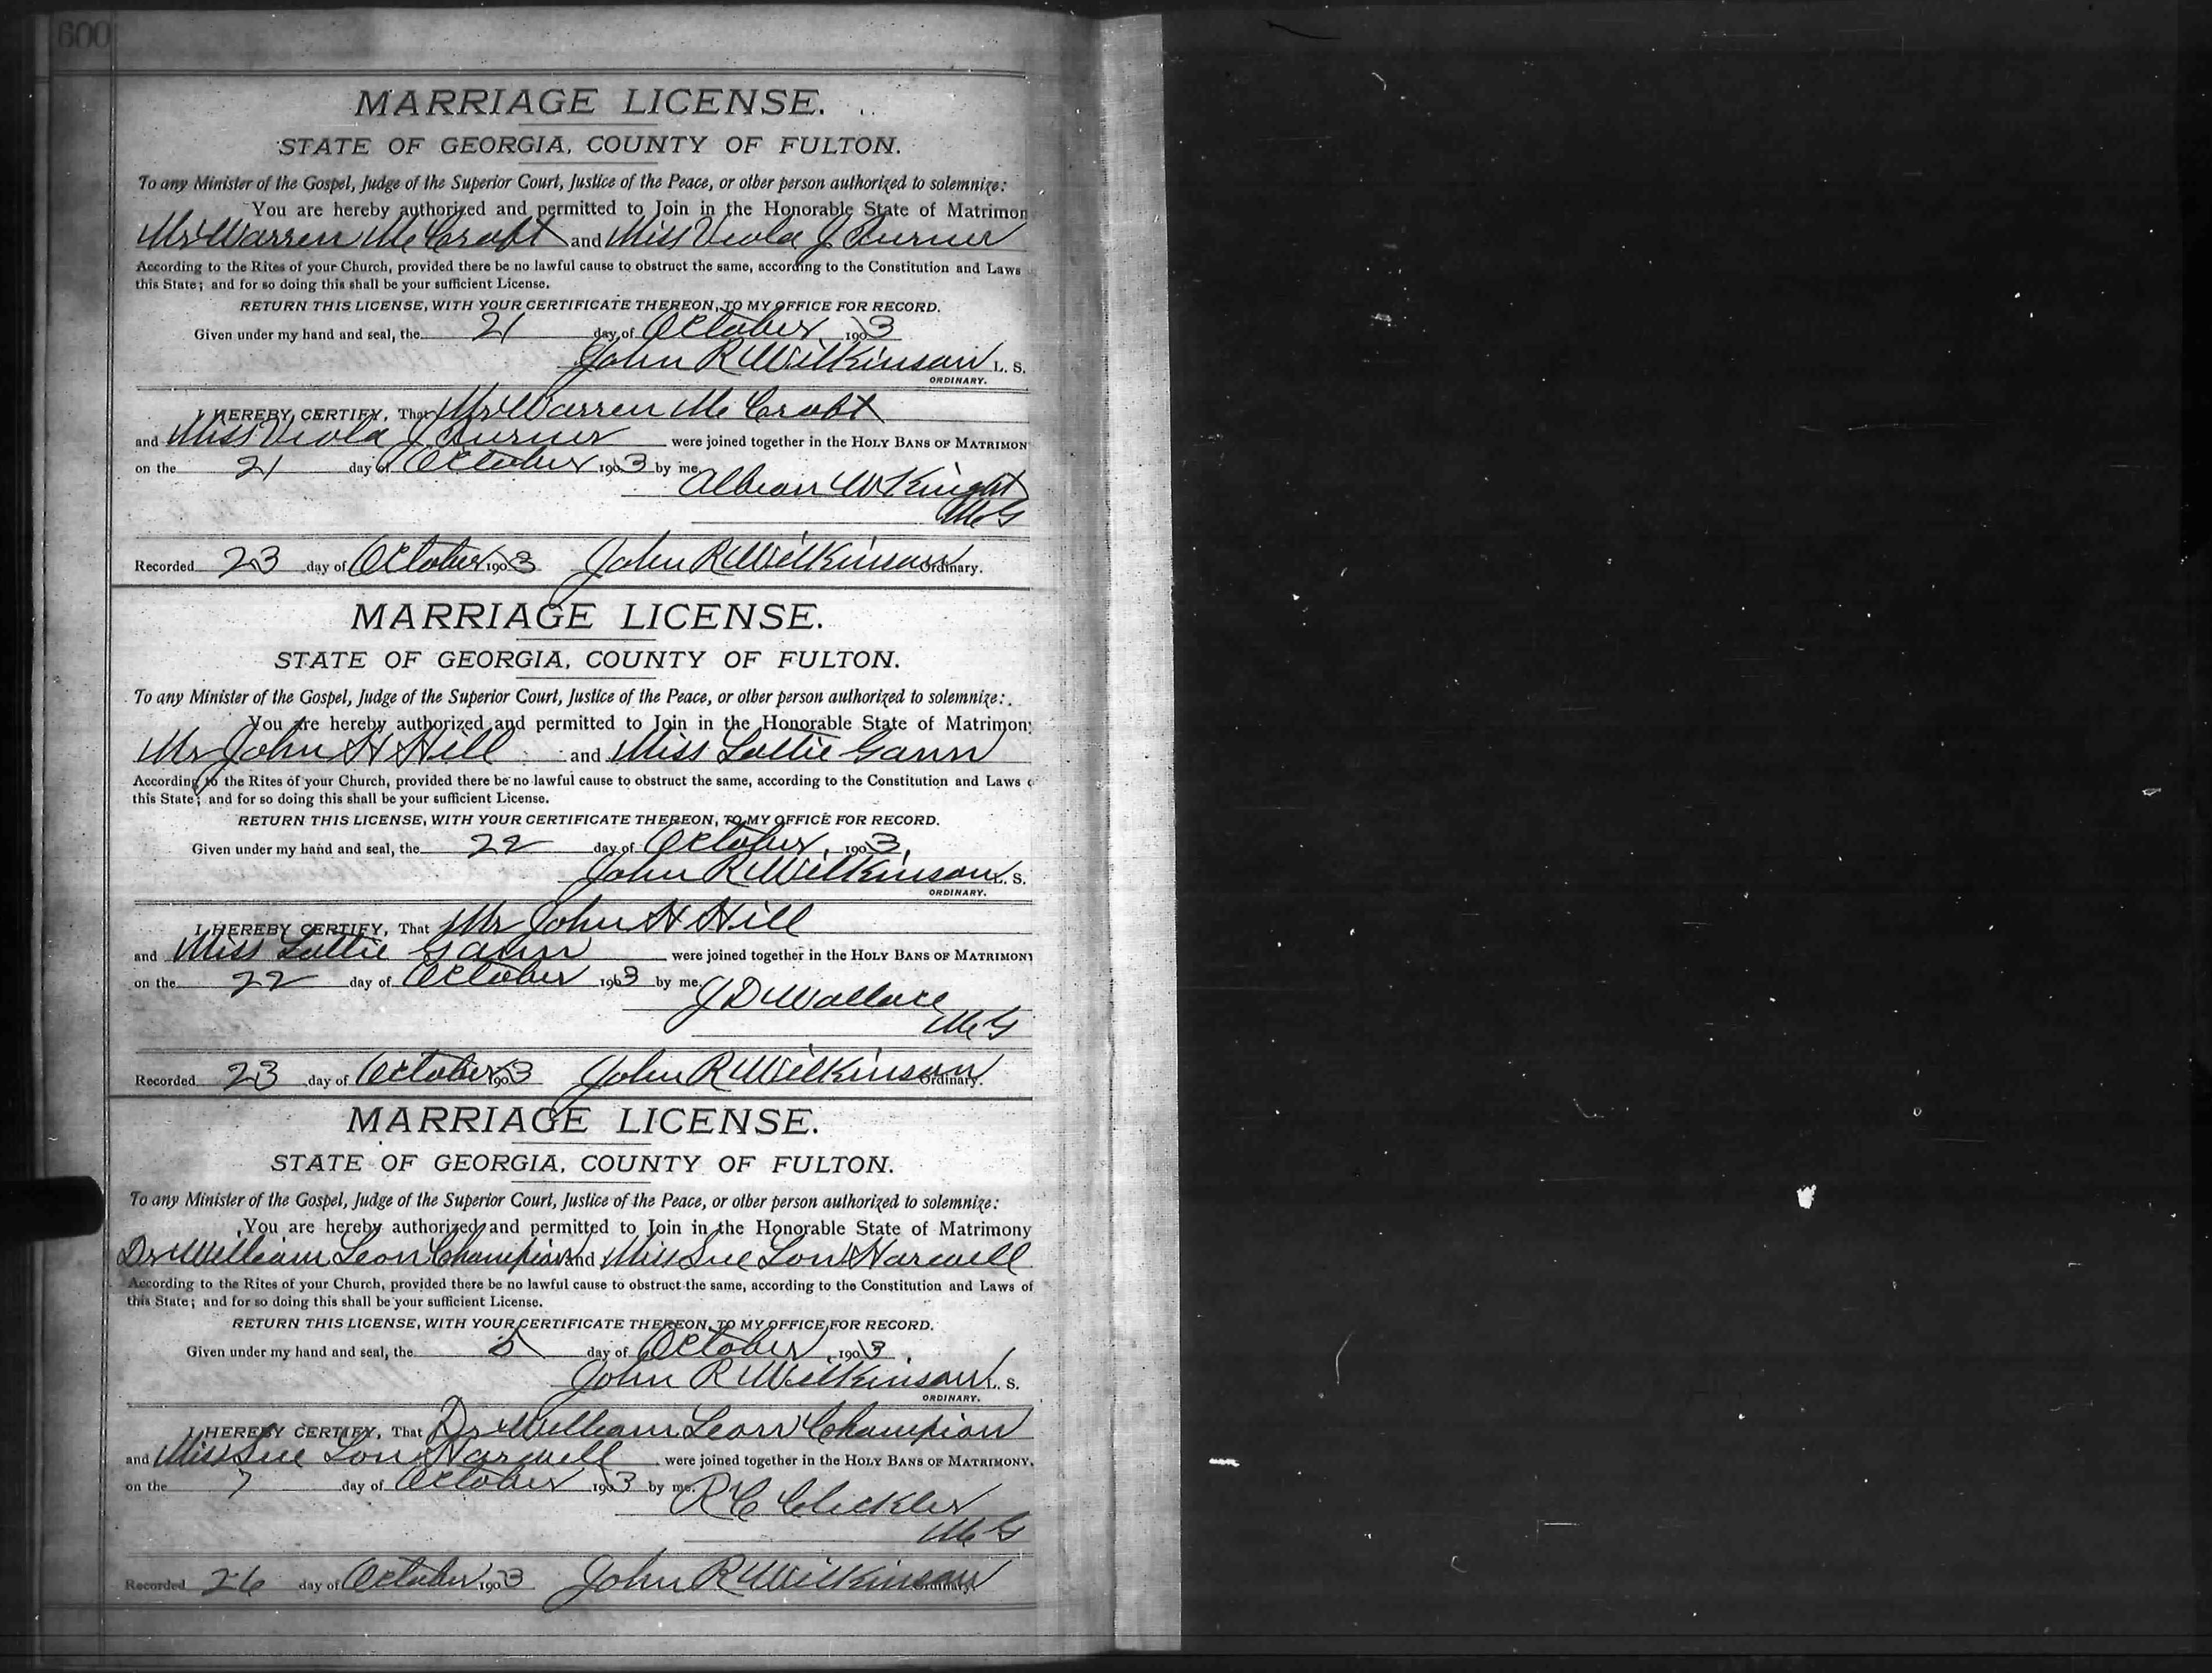 600
MARRIAGE LICENSE.
STATE OF GEORGIA, COUNTY OF FULTON.
To any Minister of the Gospel, Judge of the Superior Court, Justice of the Peace, or other person authorized to solemnize:
You are hereby authorized and permitted to Join in the Honorable State of Matrimon
Mr Warren McCraft and Miss Viola J Turner
According to the Rites of your Church, provided there be no lawful cause to obstruct the same, according to the Constitution and Laws
this State; and for so doing this shall be your sufficient License.
RETURN THIS LICENSE, WITH YOUR CERTIFICATE THEREON, TO MY OFFICE FOR RECORD.
Given under my hand and seal, the 21 day of October 1903
John R Wilkinson L. S.
ORDINARY.
I HEREBY CERTIFY, That Mr Warren McCraft
and Miss Viola J Turner were joined together in the HOLY BANS OF MATRIMON
on the 21 day of October 1903 by me
Albion W Knight
MG
Recorded 23 day of October 1903 John R Wilkinson Ordinary.
MARRIAGE LICENSE.
STATE OF GEORGIA, COUNTY OF FULTON.
To any Minister of the Gospel, Judge of the Superior Court, Justice of the Peace, or other person authorized to solemnize:
You are hereby authorized and permitted to Join in the Honorable State of Matrimon
Mr John H Hill and Miss Lottie Gann
According to the Rites of your Church, provided there be no lawful cause to obstruct the same, according to the Constitution and Laws
this State; and for so doing this shall be your sufficient License.
RETURN THIS LICENSE, WITH YOUR CERTIFICATE THEREON, TO MY OFFICE FOR RECORD.
Given under my hand and seal, the 22 day of October, 1903,
John R Wilkinson L. S.
ORDINARY.
I HEREBY CERTIFY, That Mr John H Hill
and Miss Lottie Gann were joined together in the HOLY BANS OF MATRIMONY
on the 22 day of October 1903 by me.
J D Wallace
MG
Recorded 23 day of October 1903 John R Wilkinson Ordinary.
MARRIAGE LICENSE.
STATE OF GEORGIA, COUNTY OF FULTON.
To any Minister of the Gospel, Judge of the Superior Court, Justice of the Peace, or other person authorized to solemnize:
You are hereby authorized and permitted to Join in the Honorable State of Matrimony
Dr William Leon Champion and Miss Sue Lou Harwell
According to the Rites of your Church, provided there be no lawful cause to obstruct the same, according to the Constitution and Laws of
this State; and for so doing this shall be your sufficient License.
RETURN THIS LICENSE, WITH YOUR CERTIFICATE THEREON, TO MY OFFICE FOR RECORD.
Given under my hand and seal, the 5 day of October, 1903
John R Wilkinson L. S.
ORDINARY.
I HEREBY CERTIFY, That Dr William Leon Champion
and Miss Sue Lou Harwell were joined together in the HOLY BANS OF MATRIMONY.
on the 7 day of October 1903 by me.
R C Cleckler
MG
Recorded 26 day of October 1903 John R Wilkinson Ordinary.